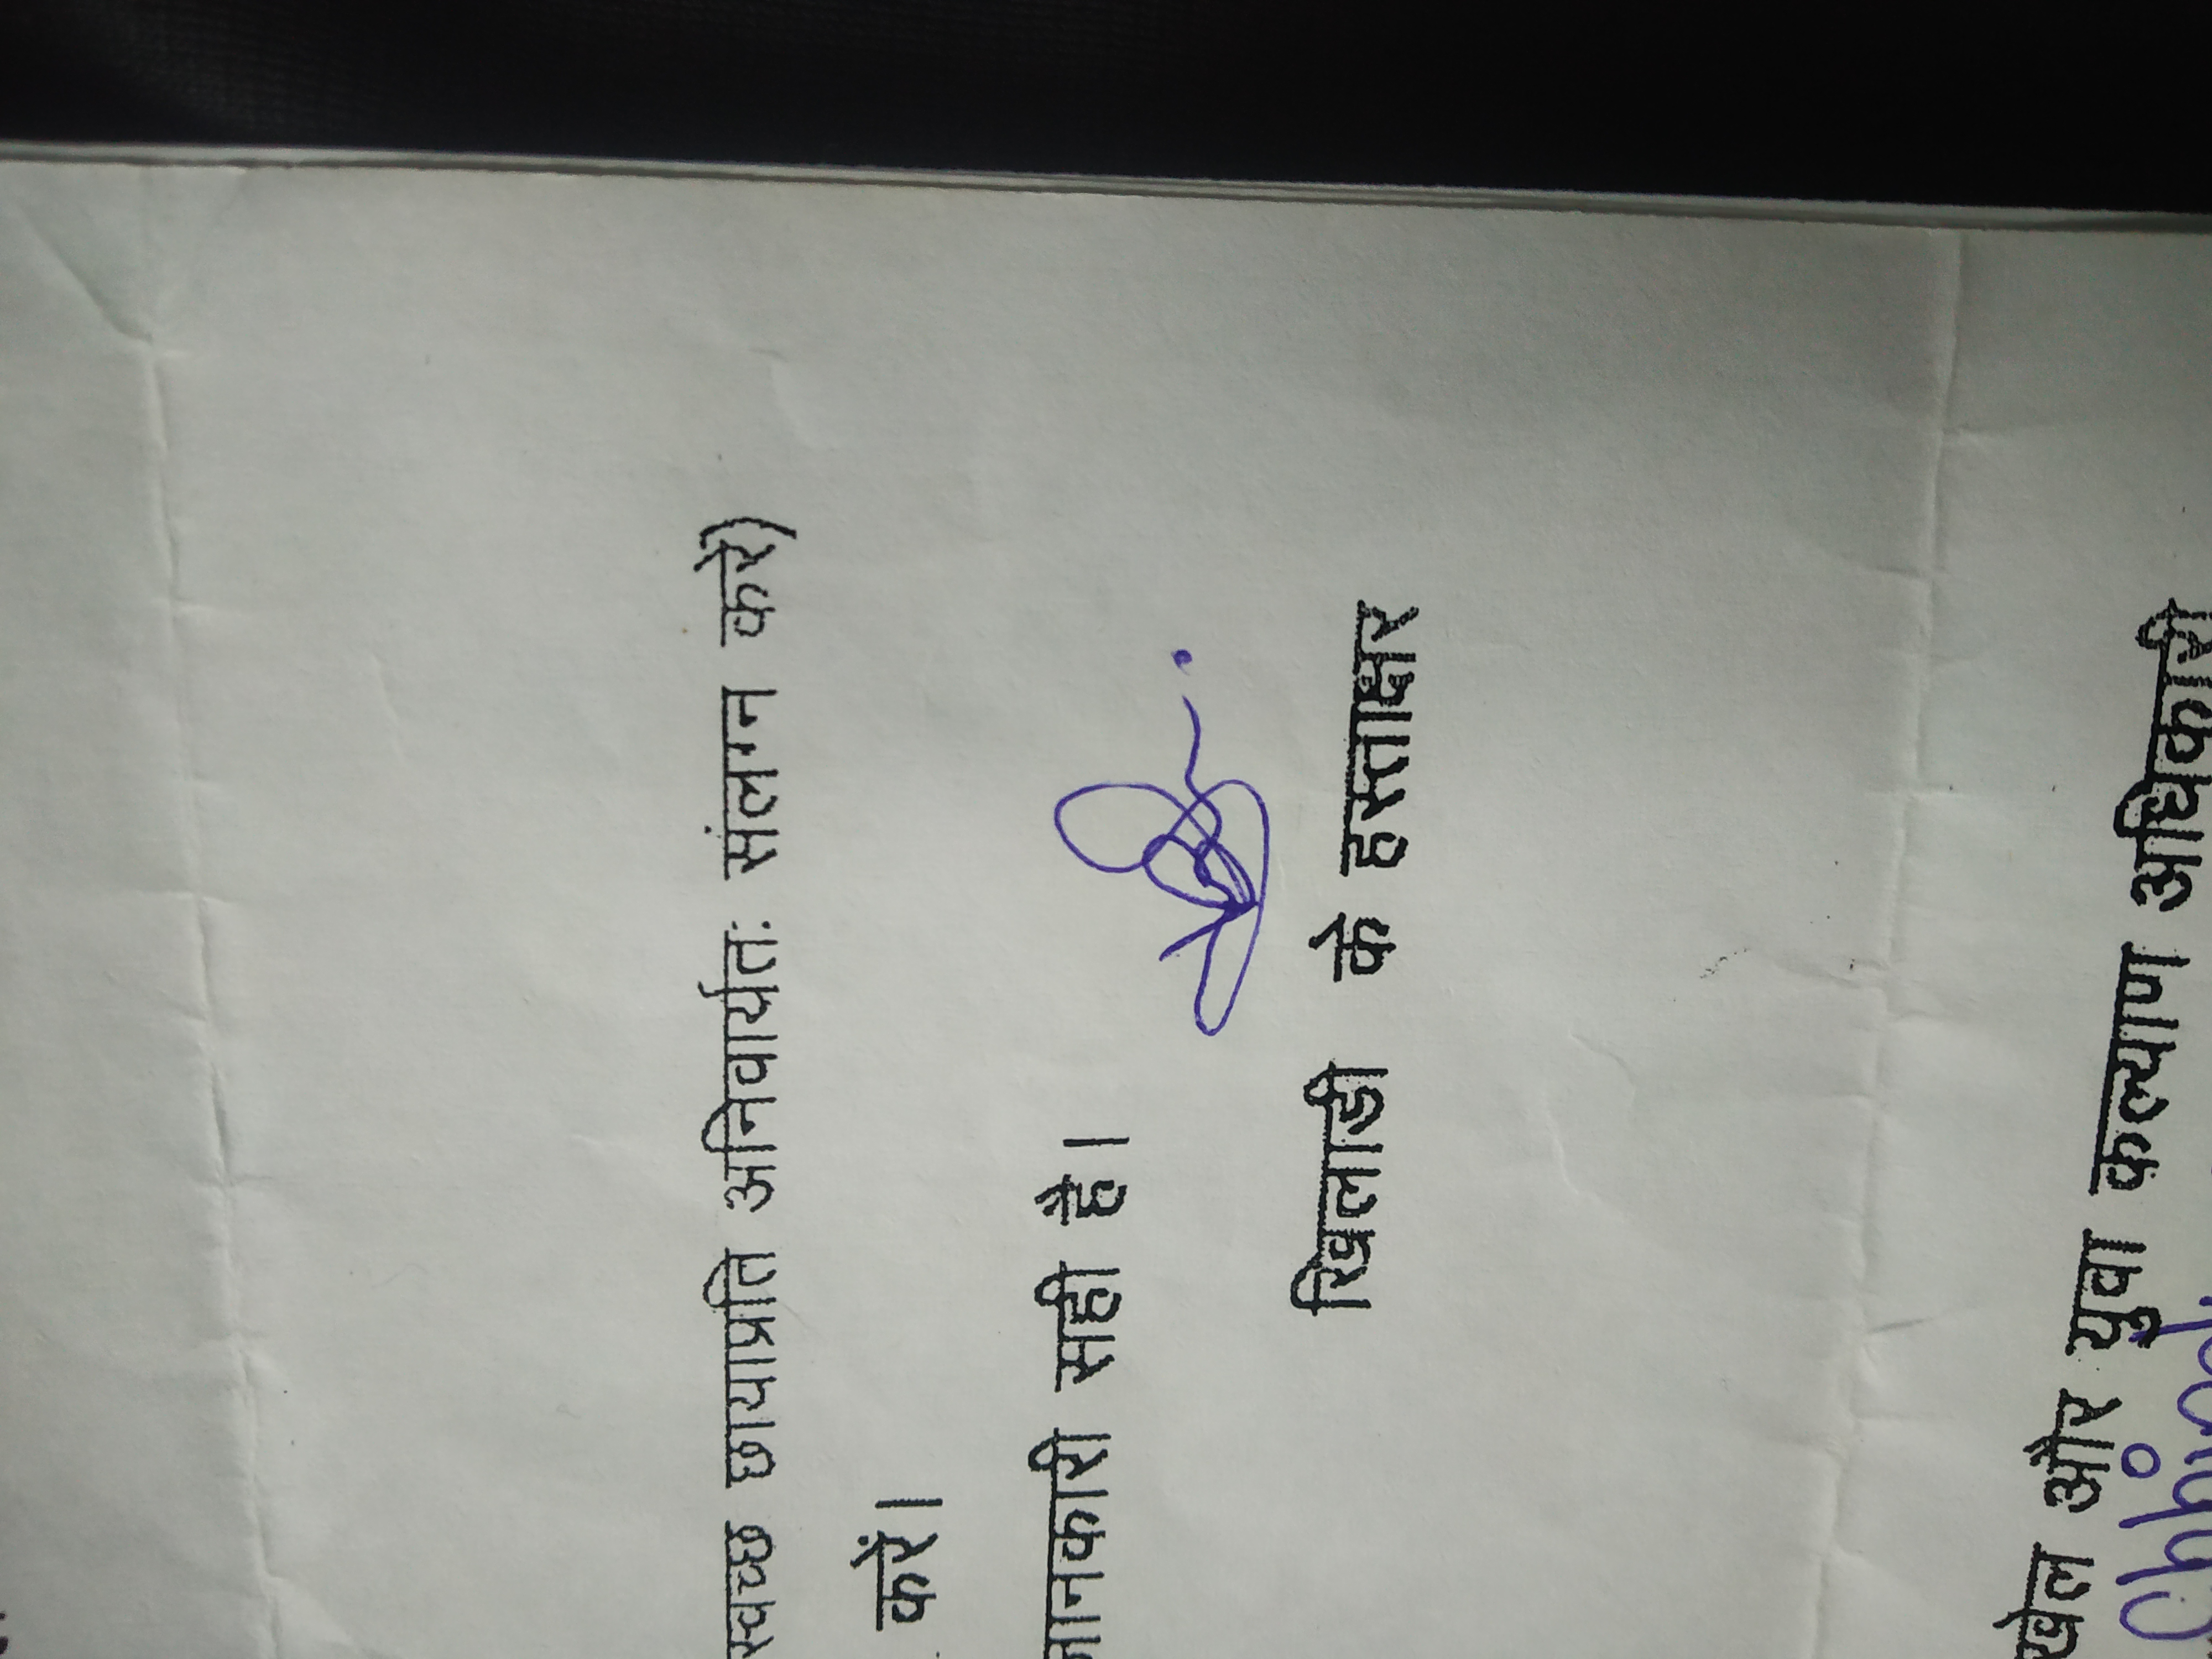 स्वच्छ छायाप्रति अनिवार्यतः संलग्न करे)
करें।
जानकारी सही है।
खिलाडी के हस्ताक्षर
खेल और युवा कल्याण अधिकारी